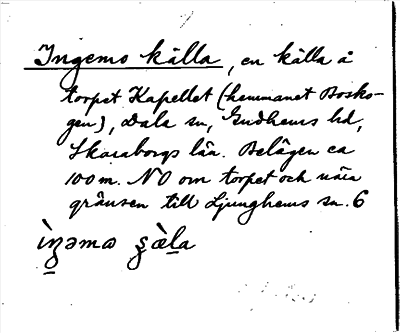 Ingemo källa, en källa å
torpet Kapellet (hemmanet Bosko-
gen), Dala sn, Gudhems hd,
Skaraborgs län. Belägen ca
100 m. NO om torpet och nära
gränsen till Ljunghems sn. 6